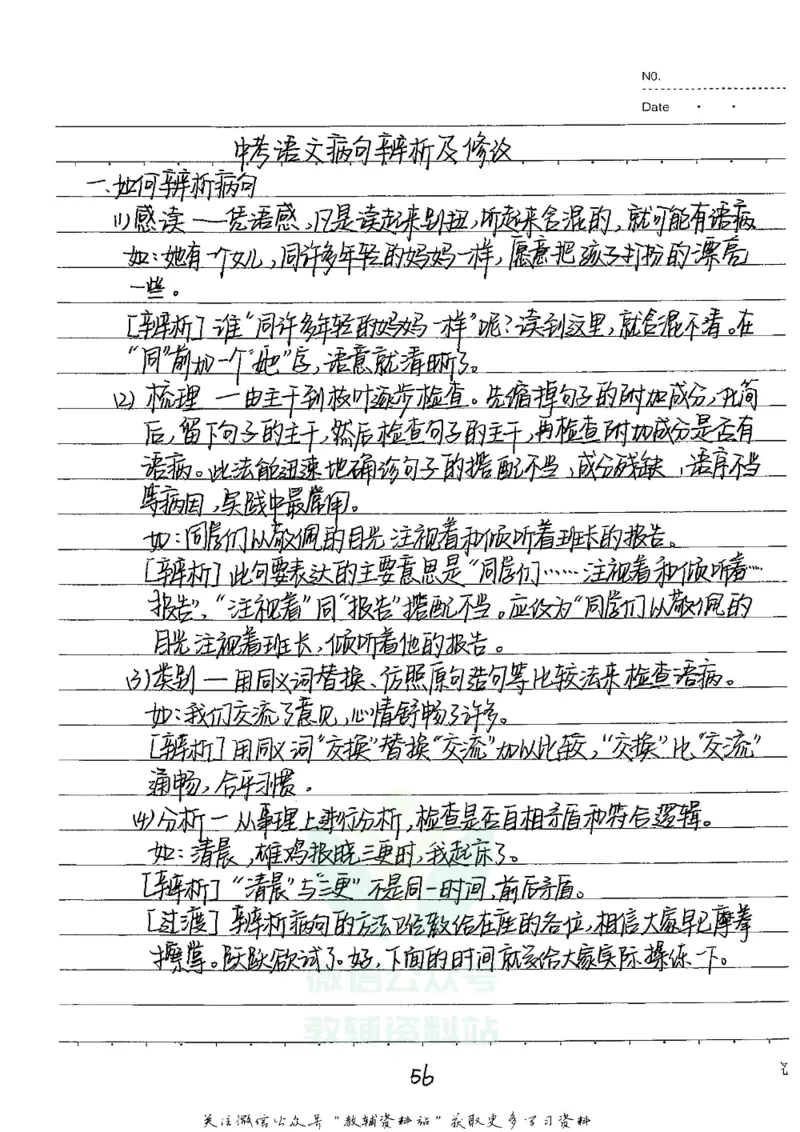 NO.
Date
中考语文病句辨析及修改
一、如何辨析病句
(1)感读——凭语感,凡是读起来别扭,听起来含混的,就可能有语病
如:她有一个女儿,同许多年轻的妈妈一样,愿意把孩子打扮的漂亮
一些。
[辨析]谁“同许多年轻的妈妈一样”呢?读到这里,就含混不清。在
“同”前加一个“她”字,语意就清晰了。
(2)梳理 —由主干到枝叶逐步检查。先缩掉句子的附加成分,化简
后,留下句子的主干,然后检查句子的主干,再检查附加成分是否有
语病。此法能迅速地确诊句子的搭配不当,成分残缺,语序不当
等病因,实践中最常用。
如:同学们以敬佩的目光注视着和倾听着班长的报告。
[辨析]此句要表达的主要意思是“同学们……注视着和倾听着…
报告”、“注视着”同“报告”搭配不当。应改为“同学们以敬佩的
目光注视着班长,倾听着他的报告。
(3)类别—用同义词替换、仿照原句造句等比较法来检查语病。
如:我们交流了意见,心情舒畅了许多。
[辨析]用同义词“交换”替换“交流”加以比较,“交换”比“交流”
通畅,合乎习惯。
(4)分析—从事理上进行分析,检查是否自相矛盾和符合逻辑。
如:清晨,雄鸡报晓三更时,我起床了。
[辨析]“清晨”与“三更”不是同一时间,前后矛盾。
[过渡]辨析病句的方法已经教给在座的各位,相信大家早已摩拳
擦掌。跃跃欲试了。好,下面的时间就交给大家实际操练一下。
微信公众号
教辅资料站
56
关注微信公众号“教辅资料站”获取更多学习资料